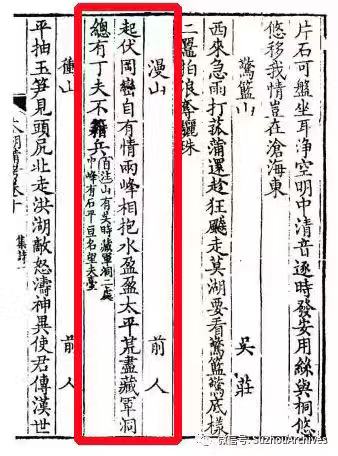 片石可盤坐耳淨空明中清音逐時發安用絲與桐悠
悠移我情豈在滄海東
驚籃山 吳莊
西來急雨打菰蒲還趁狂飈走莫湖要看驚籃驚底樣
二拍浪奪驪珠
漫山 前人
起伏岡巒自有情兩峰相抱水盈盈太平荒盡藏軍洞
總有丁夫不籍兵
自注山有吳時藏軍洞二處
峰有石平亘名望夫臺
衝山 前人
平抽玉笋見頭尻北走洪湖敵怒濤神異使君傳漢世
太湖備考卷十 集詩一
微信号: SuzhouArchives